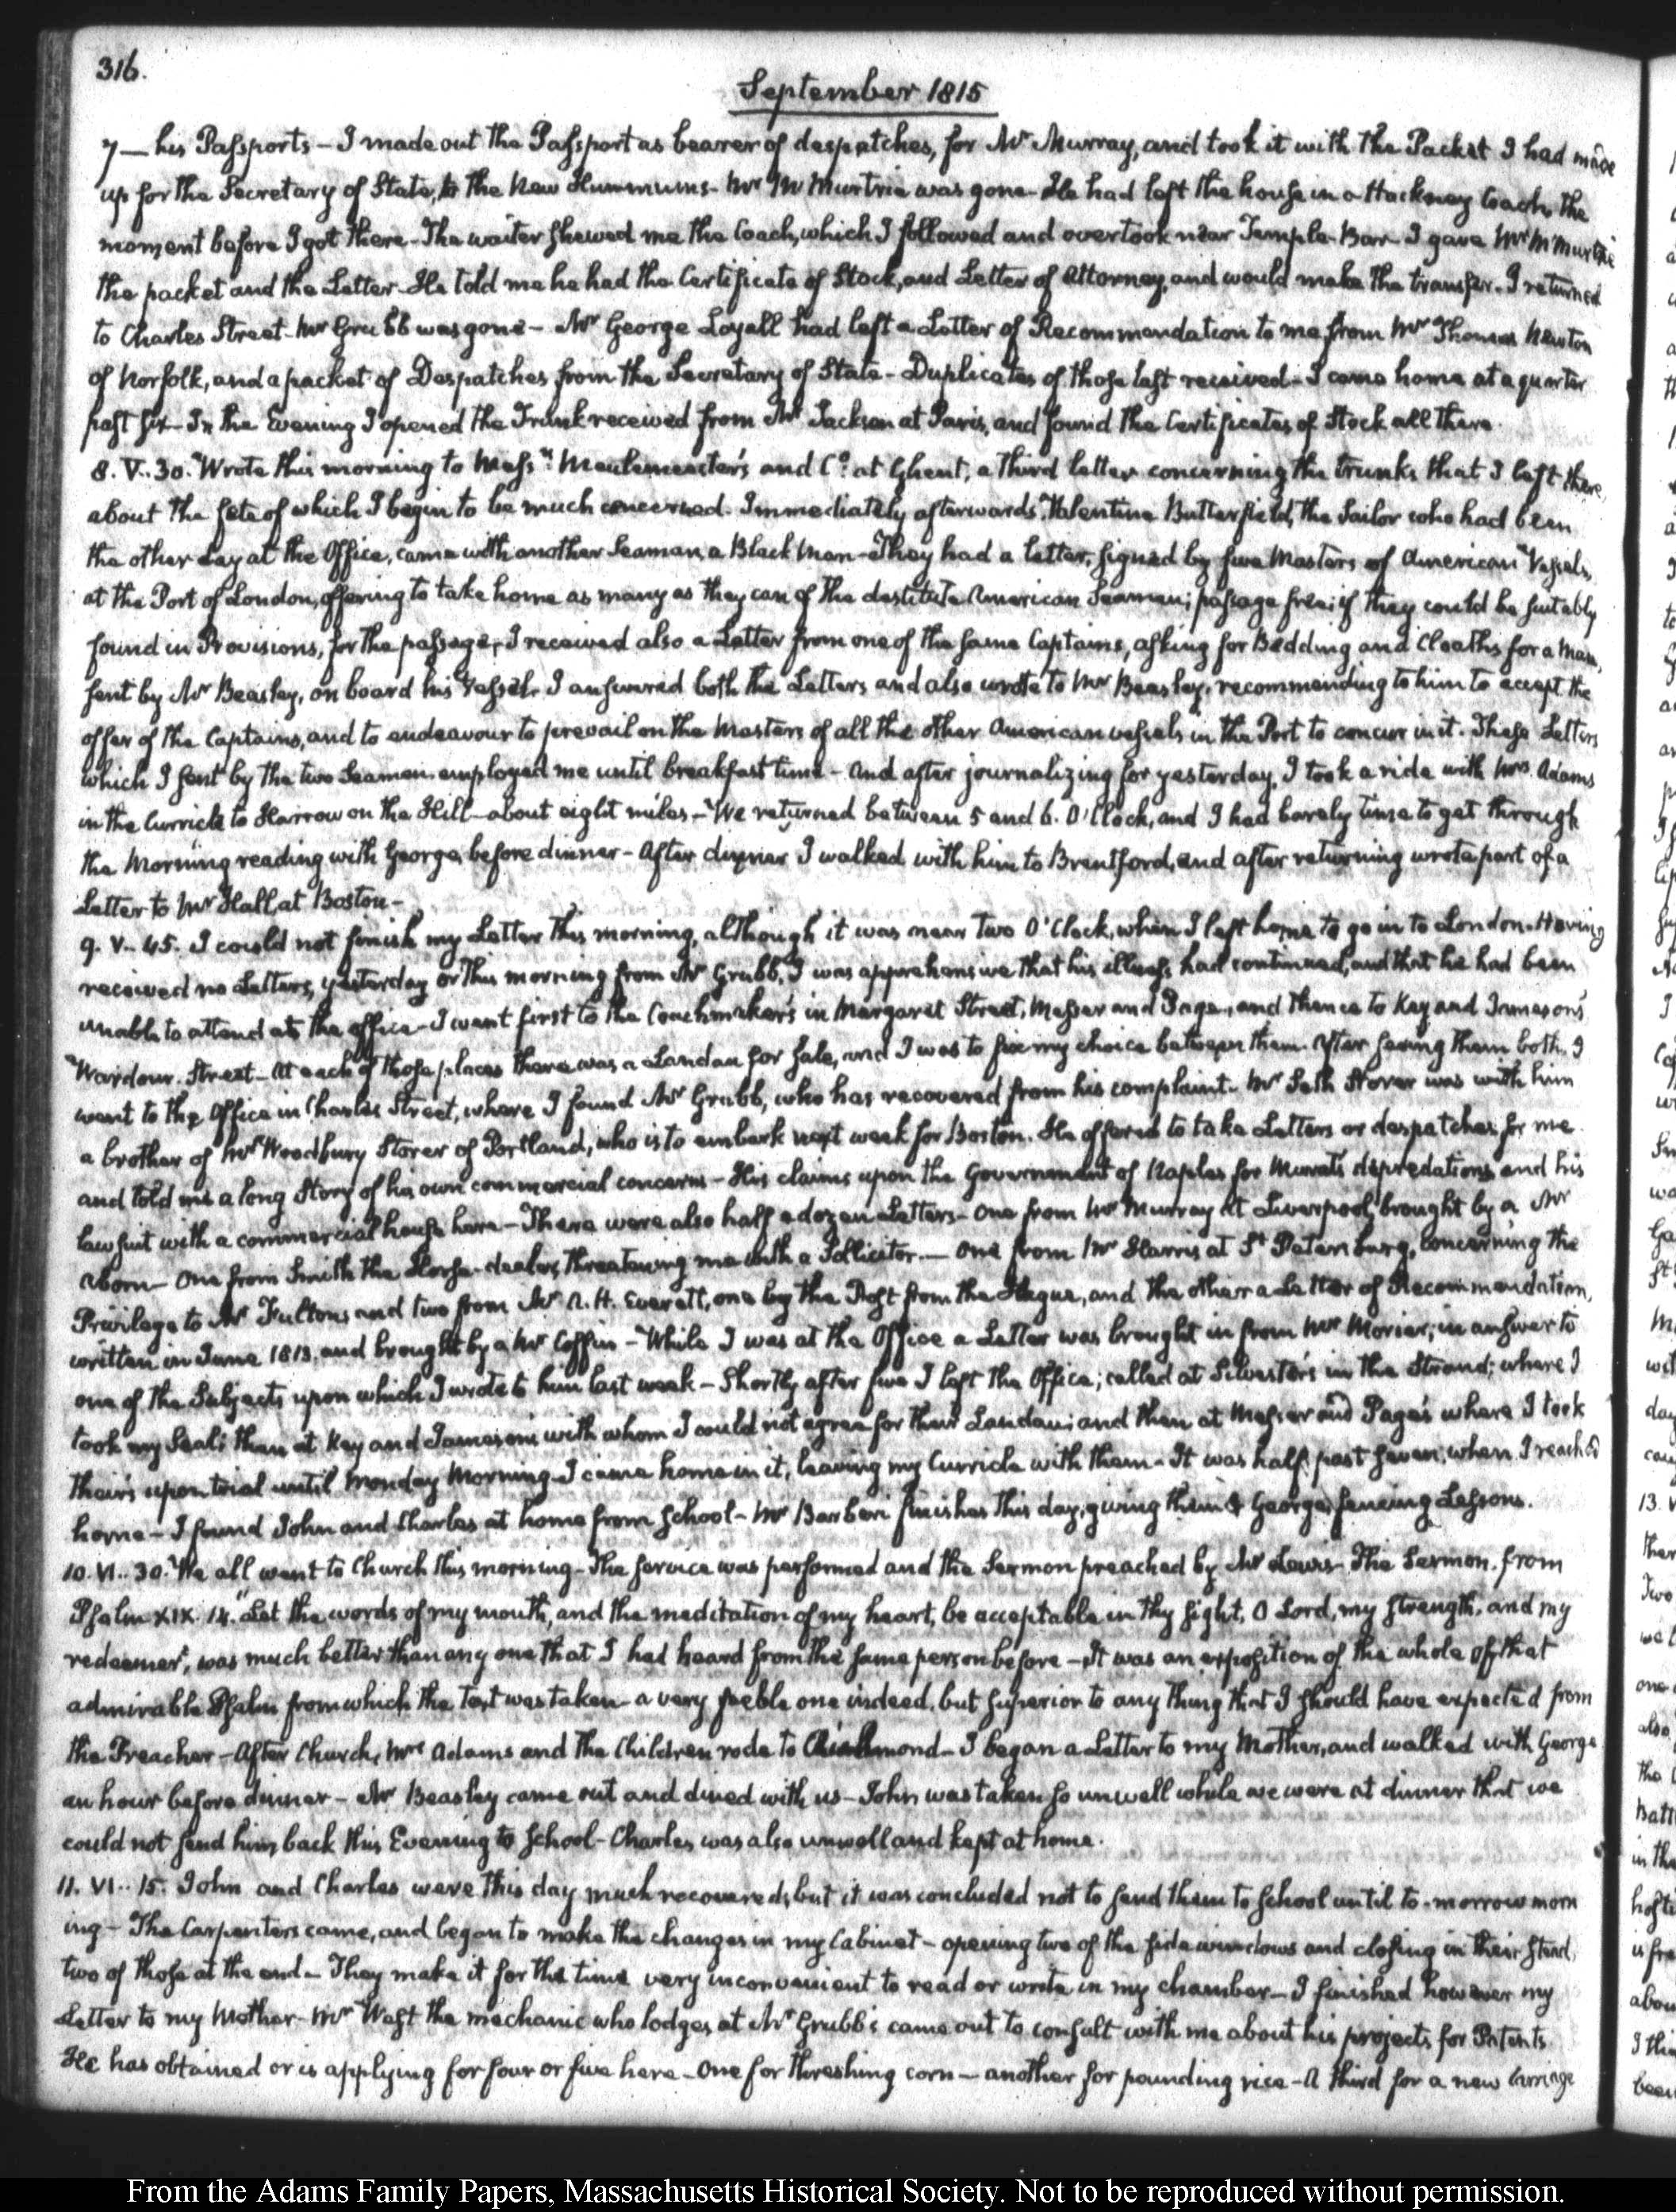 316.
September 1815
7 — his Passports – I made out the Passport as bearer of despatches, for Mr Murray, and took it with the Packet I had made
up for the Secretary of State, to the New Hummums – Mr McMurtrie was gone – He had left the house in a Hackney Coach, the
moment before I got there – The waiter shewed me the Coach, which I followed and overtook near Temple-Bar – I gave Mr McMurtrie
the packet and the Letter. He told me he had the Certificate of Stock, and Letter of Attorney, and would make the transfer. I returned
to Charles Street – Mr Grubb was gone – Mr George Loyall had left a Letter of Recommendation to me from Mr Thomas Newton
of Norfolk, and a packet of Despatches from the Secretary of State – Duplicates of those last received – I came home at a quarter
past six – In the Evening I opened the Trunk received from Mr Jackson at Paris, and found the Certificates of Stock all there.
8. V..30. Wrote this morning to Messrs Meulemeester's and Co. at Ghent, a third letter concerning the trunks that I left there,
about the fate of which I begin to be much concerned. Immediately afterwards Valentine Butterfield, the Sailor who had been
the other day at the Office, came with another Seaman, a Black Man – They had a letter, signed by five Masters of American Vessels,
at the Port of London, offering to take home as many as they can of the destitute American Seamen; passage free; if they could be suitably
found in Provisions, for the passage – I received also a Letter from one of the same Captains, asking for Bedding and Cloaths for a Man,
sent by Mr Beasley, on board his Vessel. I answered both the Letters and also wrote to Mr Beasley, recommending to him to accept the
offer of the Captains, and to endeavour to prevail on the Masters of all the other American vessels in the Port to concur in it. These Letters
which I sent by the two Seamen employed me until breakfast time – And after journalizing for yesterday, I took a ride with Mrs Adams
in the Curricle to Harrow on the Hill – about eight miles – We returned between 5 and 6. O'Clock, and I had barely time to get through
the Morning reading with George, before dinner – After dinner I walked with him to Brentford, and after returning wrote part of a
Letter to Mr Hall at Boston –
9. V..45. I could not finish my Letter this morning, although it was near two O'Clock, when I left home to go in to London. Having
received no Letters, yesterday or this morning from Mr Grubb, I was apprehensive that his illness had continued, and that he had been
unable to attend at the office – I went first to the Coachmaker's in Margaret Street, Messer and Page, and thence to Key and Jameson's
Wardour Street – At each of those places there was a Landau for sale, and I was to fix my choice between them. After seeing them both, I
went to the Office in Charles Street, where I found Mr Grubb, who has recovered from his complaint. Mr Seth Storer was with him
a brother of Mr Woodbury Storer of Portland, who is to embark next week for Boston. He offered to take Letters or despatches for me
and told me a long Story of his own commercial concerns – His claims upon the Government of Naples for Murat's depredations and his
lawsuit with a commercial house here – There were also half a dozen Letters – One from Mr Murray at Liverpool, brought by a Mr
Aborn – One from Smith the Horse-dealer, threatening me with a Sollicitor. – One from Mr Harris at St Petersburg, concerning the
Privilege to Mr Fulton, and two from Mr A. H. Everett, one by the Post from the Hague, and the other a Letter of Recommendation,
written in June 1813. and brought by a Mr Coffin – While I was at the Office a Letter was brought in from Mr Morier, in answer to
one of the Subjects upon which I wrote to him last week – Shortly after five I left the Office; called at Silvester's in the Strand; where I
took my Seals then at Key and Jamesons with whom I could not agree for their Landau; and then at Messer and Page's where I took
theirs upon trial until Monday Morning – I came home in it, leaving my Curricle with them – It was half past seven, when I reached
home – I found John and Charles at home from School – Mr Barberi finishes this day, giving them & George, fencing Lessons.
10. VI..30. We all went to Church this morning – The service was performed and the Sermon preached by Mr Lewis – The Sermon, from
Psalm XIX. 14. "Let the words of my mouth, and the meditation of my heart, be acceptable in thy sight, O Lord, my strength, and my
redeemer", was much better than any one that I had heard from the same person before – It was an exposition of the whole of that
admirable Psalm from which the Text was taken – a very feeble one indeed, but superior to any thing that I should have expected from
the Preacher – After Church, Mrs Adams and the Children rode to Richmond – I began a Letter to my Mother, and walked with George
an hour before dinner – Mr Beasley came out and dined with us – John was taken so unwell while we were at dinner that we
could not send him back this Evening to School – Charles was also unwell and kept at home.
11. VI..15. John and Charles were this day much recovered, but it was concluded not to send them to School until to-morrow morn
ing – The Carpenters came, and began to make the changes in my Cabinet – opening two of the side windows and closing in their stead,
two of those at the end – They make it for the time very inconvenient to read or write in my chamber – I finished however my
Letter to my Mother – Mr West the mechanic who lodges at Mr Grubb's came out to consult with me about his projects for Patents
He has obtained or is applying for four or five here – One for threshing corn – another for pounding rice – A third for a new carriage
From the Adams Family Papers, Massachusetts Historical Society. Not to be reproduced without permission.